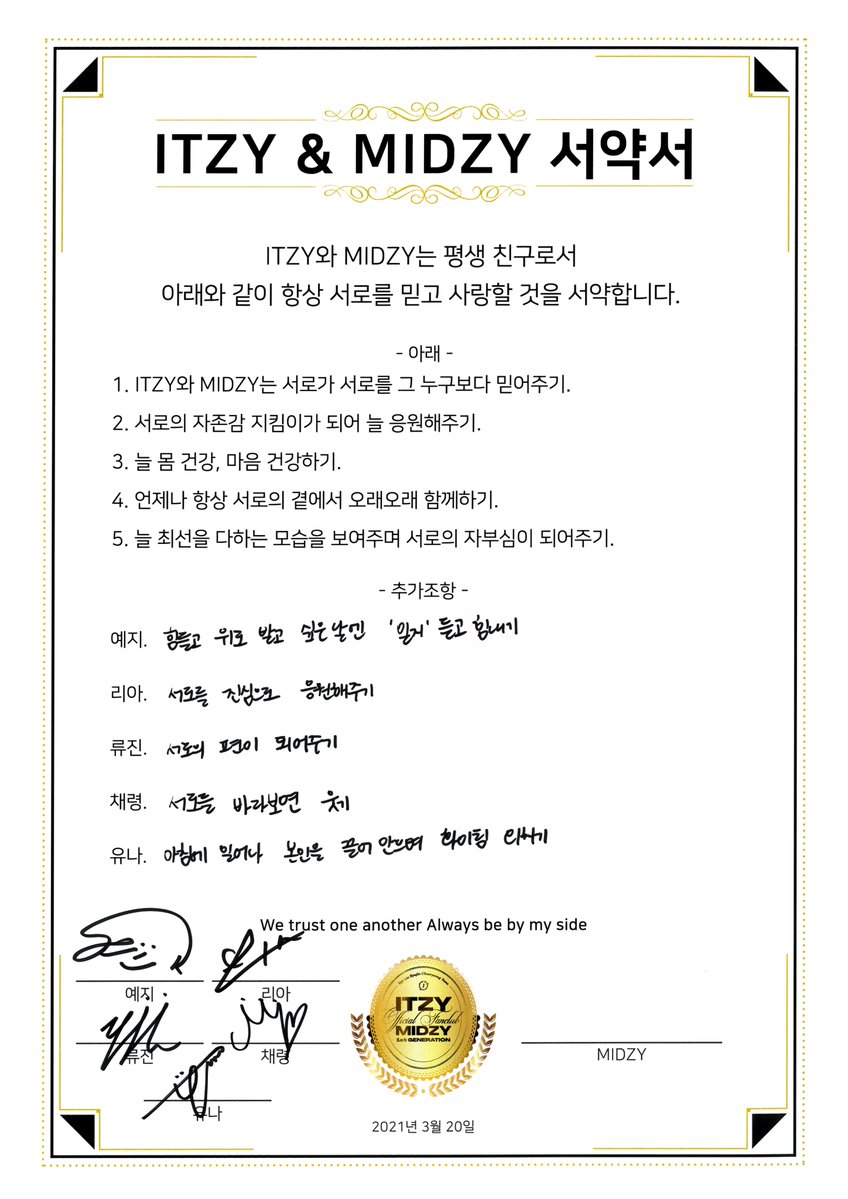 ITZY & MIDZY 서약서
ITZY와 MIDZY는 평생 친구로서
아래와 같이 항상 서로를 믿고 사랑할 것을 서약합니다.
- 아래 -
1. ITZY와 MIDZY는 서로가 서로를 그 누구보다 믿어주기.
2. 서로의 자존감 지킴이가 되어 늘 응원해주기.
3. 늘 몸 건강, 마음 건강하기.
4. 언제나 항상 서로의 곁에서 오래오래 함께하기.
5. 늘 최선을 다하는 모습을 보여주며 서로의 자부심이 되어주기.
- 추가조항 -
예지. 힘들고 위로 받고 싶은 날엔 '믿지' 듣고 힘내기
리아. 서로를 진심으로 응원해주기
류진. 서로의 편이 되어주기
채령. 서로를 바라보면 웃기
유나. 아침에 일어나 본인을 끌어 안으며 화이팅 외치기
We trust one another Always be by my side
예지
리아
류진
채령
유나
ITZY
Official Fanclub
MIDZY
1st GENERATION
MIDZY
2021년 3월 20일